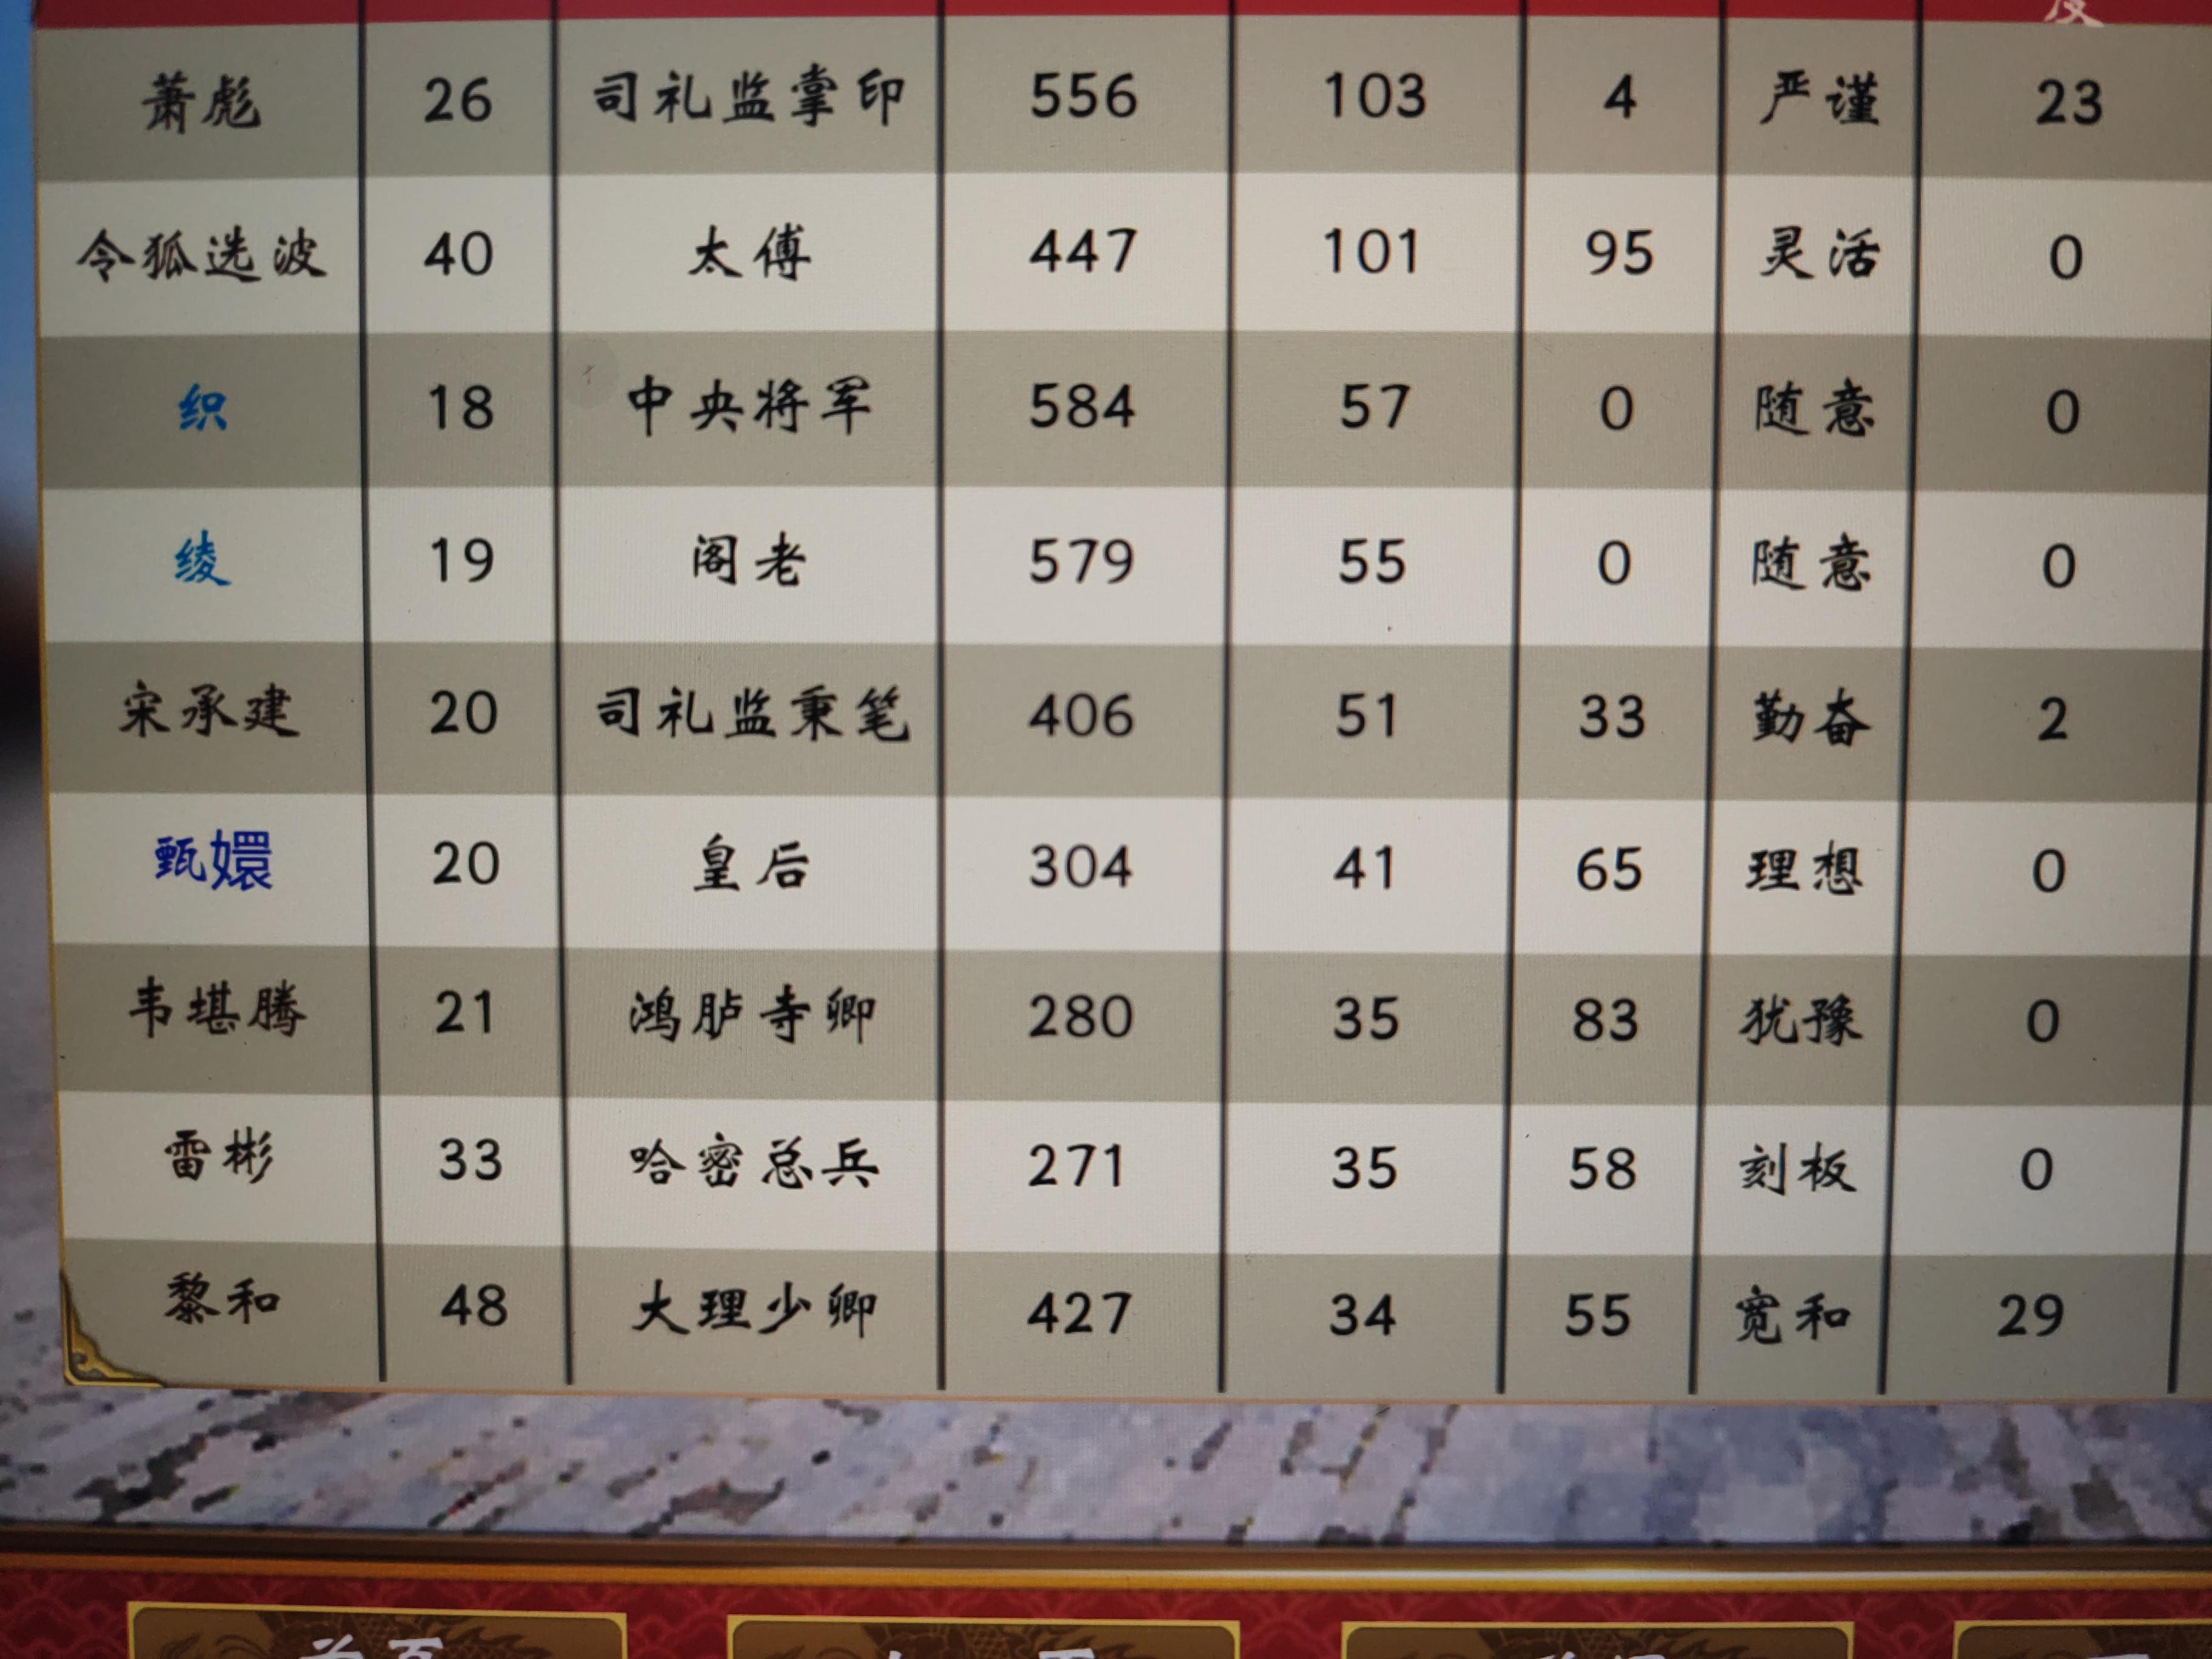 度
萧彪 26 司礼监掌印 556 103 4 严谨 23
令狐选波 40 太傅 447 101 95 灵活 0
织 18 中央将军 584 57 0 随意 0
绫 19 阁老 579 55 0 随意 0
宋承建 20 司礼监秉笔 406 51 33 勤奋 2
甄嬛 20 皇后 304 41 65 理想 0
韦堪腾 21 鸿胪寺卿 280 35 83 犹豫 0
雷彬 33 哈密总兵 271 35 58 刻板 0
黎和 48 大理少卿 427 34 55 宽和 29
首页